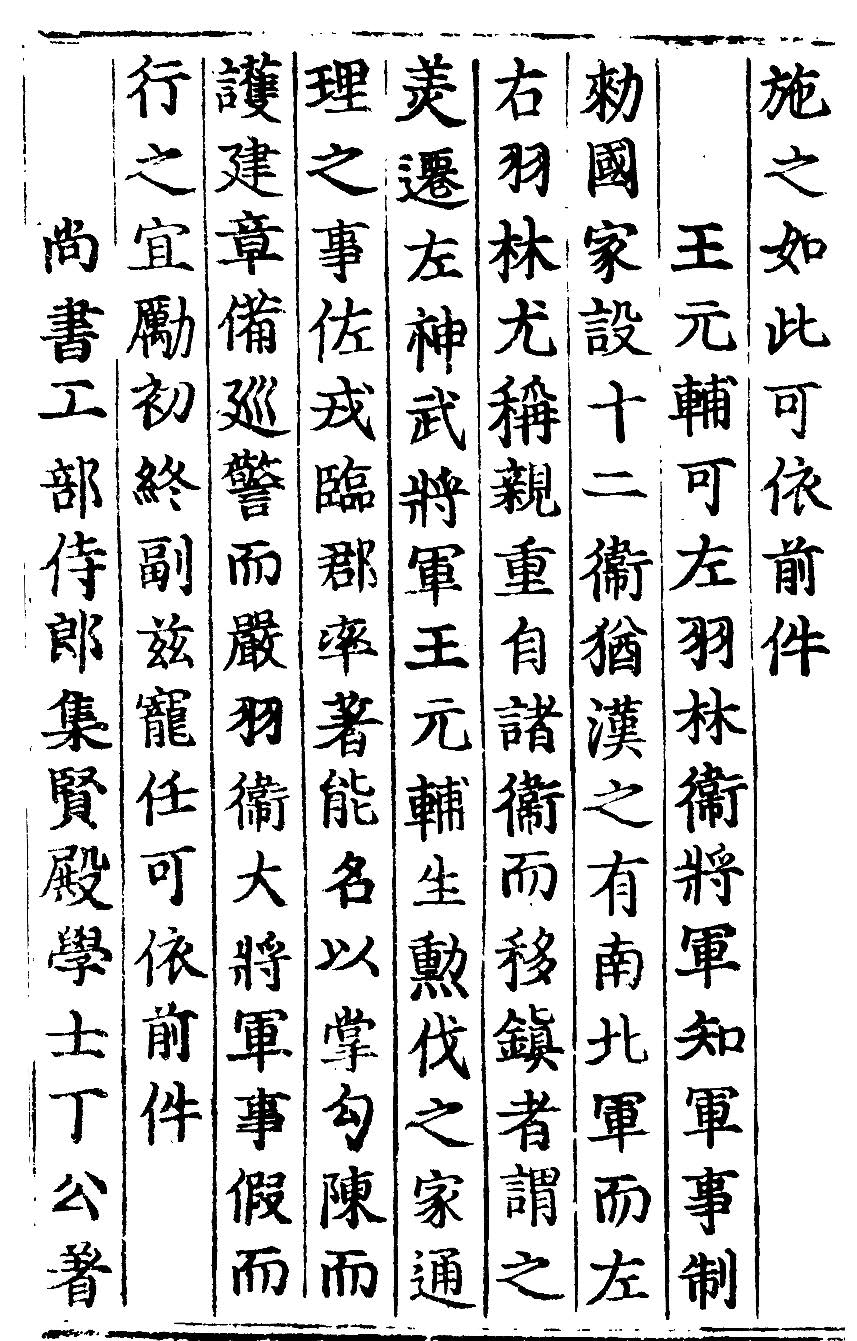 施之如此可依前件
王元輔可左羽林衞將軍知軍事制
勑國家設十二衞猶漢之有南北軍而左
右羽林尤稱親重自諸衞而移鎮者謂之
羙遷左神武將軍王元輔生勳伐之家通
理之事佐戎臨郡率著能名以掌勾陳而
護建章備廵警而嚴羽衞大將軍事假而
行之宜勵初終副兹寵任可依前件
尚書工部侍郎集賢殿學士丁公著